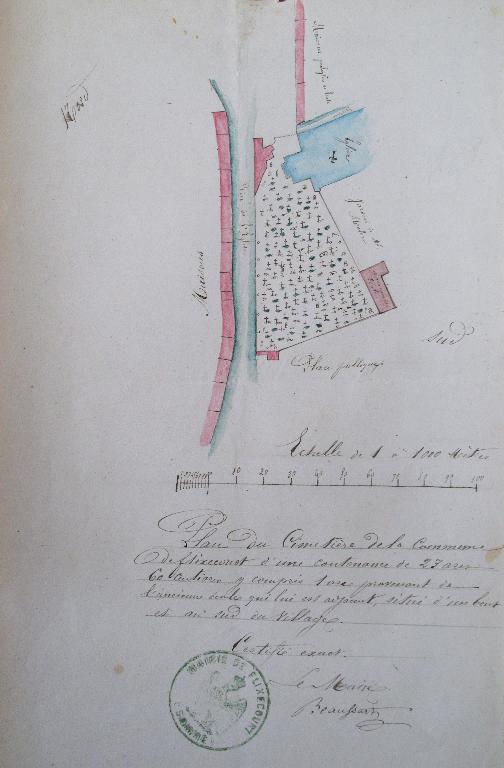 Nord
Eglise
Maisons
Rue de l'Eglise
sud
Place publique
Echelle de 1 à 1000 Mètres
10 20 30 40 50 60 70 80 90 100
Plan du Cimetière de la Commune
de Flixecourt d'une contenance de 27 ares
60 centiares y compris 1 are provenant de
l'ancienne école qui lui est adjacent, situé d'un bout
et au sud du Village.
Certifié exact.
Le Maire
Beaussart
MAIRIE DE FLIXECOURT
(SOMME)